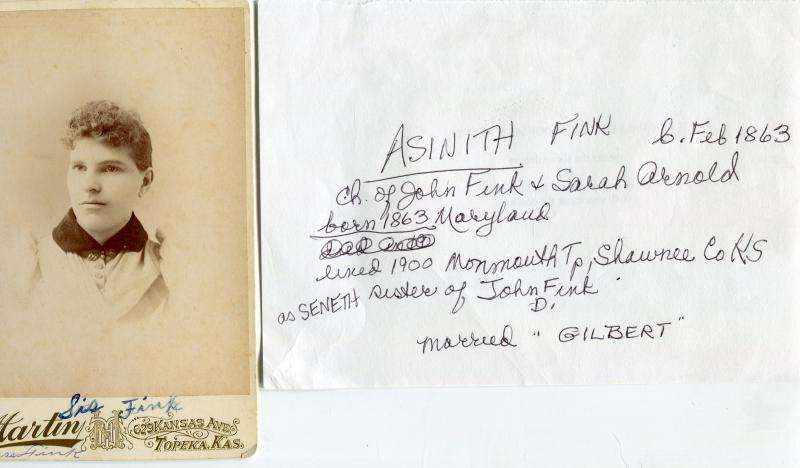 ASINITH FINK b. Feb 1863
Ch. of John Fink & Sarah Arnold
born 1863 Maryland
lived 1900 Monmouth Tp, Shawnee Co KS
as SENETH sister of John Fink
D.
married "GILBERT"
Sis Fink
Martin
629 KANSAS AVE
TOPEKA, KAS.
Fink